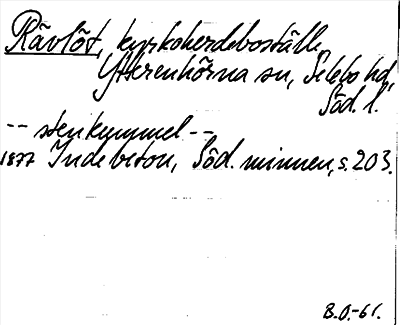 Rävlöt, kyrkoherdeboställe
Ytterenhörna sn, Selebo hd,
Söd. l.
-- stenkummel --
1877 Indebetou, Söd. minnen, s. 203.
B.O.-61.